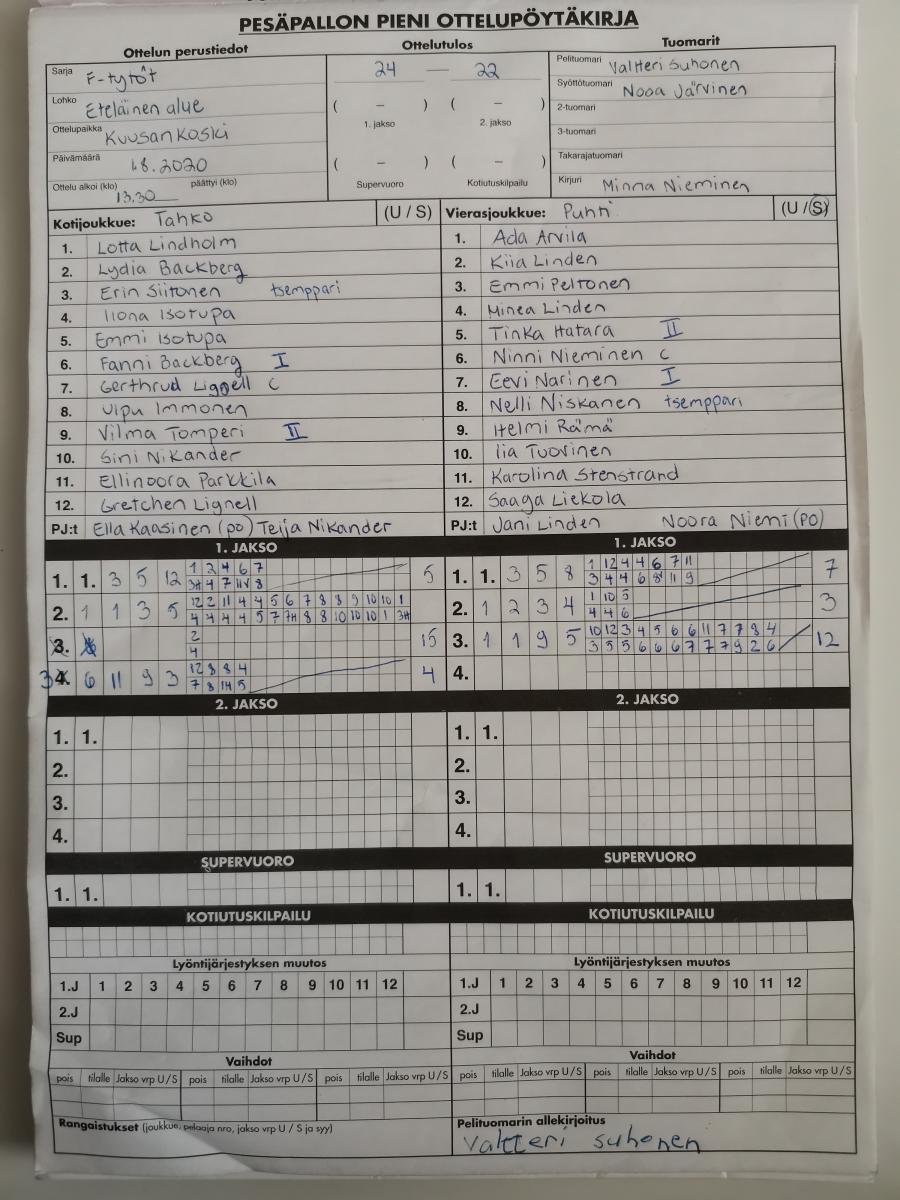 PESÄPALLON PIENI OTTELUPÖYTÄKIRJA
Ottelun perustiedot Ottelutulos Tuomarit
Sarja F-tytöt
Lohko Eteläinen alue
Ottelupaikka Kuusankoski
Päivämäärä 1.8.2020
Ottelu alkoi (klo) 13.30 päättyi (klo)
24 — 22
( – ) ( – )
1. jakso 2. jakso
( – ) ( – )
Supervuoro Kotiutuskilpailu
Pelituomari Valtteri Suhonen
Syöttötuomari Nooa Järvinen
2-tuomari
3-tuomari
Takarajatuomari
Kirjuri Minna Nieminen
Kotijoukkue: Tahko (U / S)
1. Lotta Lindholm
2. Lydia Backberg
3. Erin Siitonen tsemppari
4. Ilona Isotupa
5. Emmi Isotupa
6. Fanni Backberg I
7. Gerthrud Lignell C
8. Vipu Immonen
9. Vilma Tomperi II
10. Sini Nikander
11. Ellinoora Parkkila
12. Gretchen Lignell
PJ:t Ella Kaasinen (po) Teija Nikander
Vierasjoukkue: Puhti (U / S)
1. Ada Arvila
2. Kiia Linden
3. Emmi Peltonen
4. Minea Linden
5. Tinka Hatara II
6. Ninni Nieminen C
7. Eevi Narinen I
8. Nelli Niskanen tsemppari
9. Helmi Rämä
10. Iia Tuovinen
11. Karolina Stenstrand
12. Saaga Liekola
PJ:t Jani Linden Noora Niemi (PO)
1. JAKSO
1. 1. 3 5 12 5
1 2 4 6 7
3H 4 7 11V 8
2. 1 1 3 5
12 2 11 4 4 5 6 7 8 8 9 10 10 1
4 4 4 4 5 7 7H 8 8 10 10 10 1 3H
3. 15
2
4
3 4. 6 11 9 3 4
12 8 8 4
7 8 1H 5
1. JAKSO
1. 1. 3 5 8 7
1 12 4 4 6 7 11
3 4 4 6 8 11 9
2. 1 2 3 4 3
1 10 5
4 4 6
3. 1 1 9 5 12
10 12 3 4 5 6 6 11 7 7 8 4
3 5 5 6 6 6 7 7 7 9 2 6
4.
2. JAKSO
1. 1.
2.
3.
4.
2. JAKSO
1. 1.
2.
3.
4.
SUPERVUORO
1. 1.
SUPERVUORO
1. 1.
KOTIUTUSKILPAILU
KOTIUTUSKILPAILU
Lyöntijärjestyksen muutos
1.J 1 2 3 4 5 6 7 8 9 10 11 12
2.J
Sup
Lyöntijärjestyksen muutos
1.J 1 2 3 4 5 6 7 8 9 10 11 12
2.J
Sup
Vaihdot
pois tilalle Jakso vrp U / S pois tilalle Jakso vrp U / S pois tilalle Jakso vrp U / S
Vaihdot
pois tilalle Jakso vrp U / S pois tilalle Jakso vrp U / S pois tilalle Jakso vrp U / S
Rangaistukset (joukkue, pelaaja nro, jakso vrp U / S ja syy)
Pelituomarin allekirjoitus
Valtteri suhonen